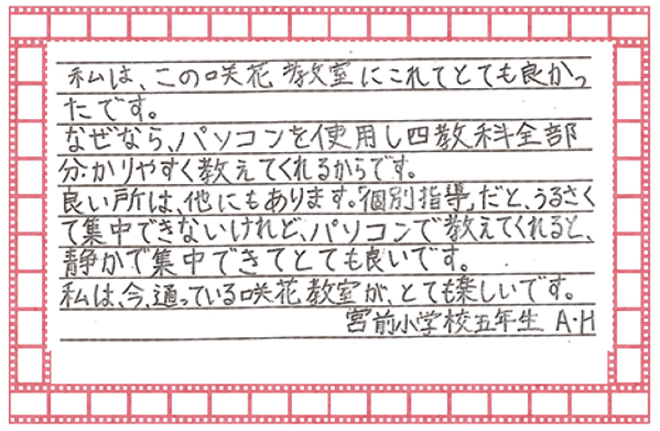 私は、この咲花教室にこれてとても良かっ
たです。
なぜなら、パソコンを使用し四教科全部
分かりやすく教えてくれるからです。
良い所は、他にもあります。「個別指導」だと、うるさく
て集中できないけれど、パソコンで教えてくれると、
静かで集中できてとても良いです。
私は、今、通っている咲花教室が、とても楽しいです。
宮前小学校五年生 A・H